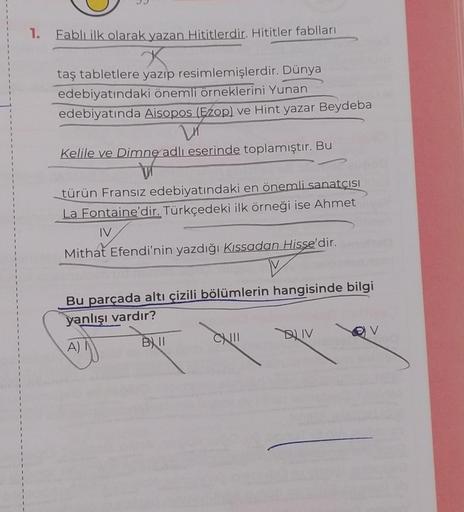 1. Fablı ilk olarak yazan Hititlerdir. Hititler fablları
taş tabletlere yazıp resimlemişlerdir. Dünya
edebiyatındaki önemli örneklerini Yunan
edebiyatında Aisopos (Ezop) ve Hint yazar Beydeba
Kelile ve Dimne adlı eserinde toplamıştır. Bu
türün Fransız edebiyatındaki en önemli sanatçısı
La Fontaine'dir. Türkçedeki ilk örneği ise Ahmet
IV
Mithat Efendi'nin yazdığı Kıssadan Hisse'dir.
V
Bu parçada altı çizili bölümlerin hangisinde bilgi
yanlışı vardır?
A) I B) II C) III D) IV E) V